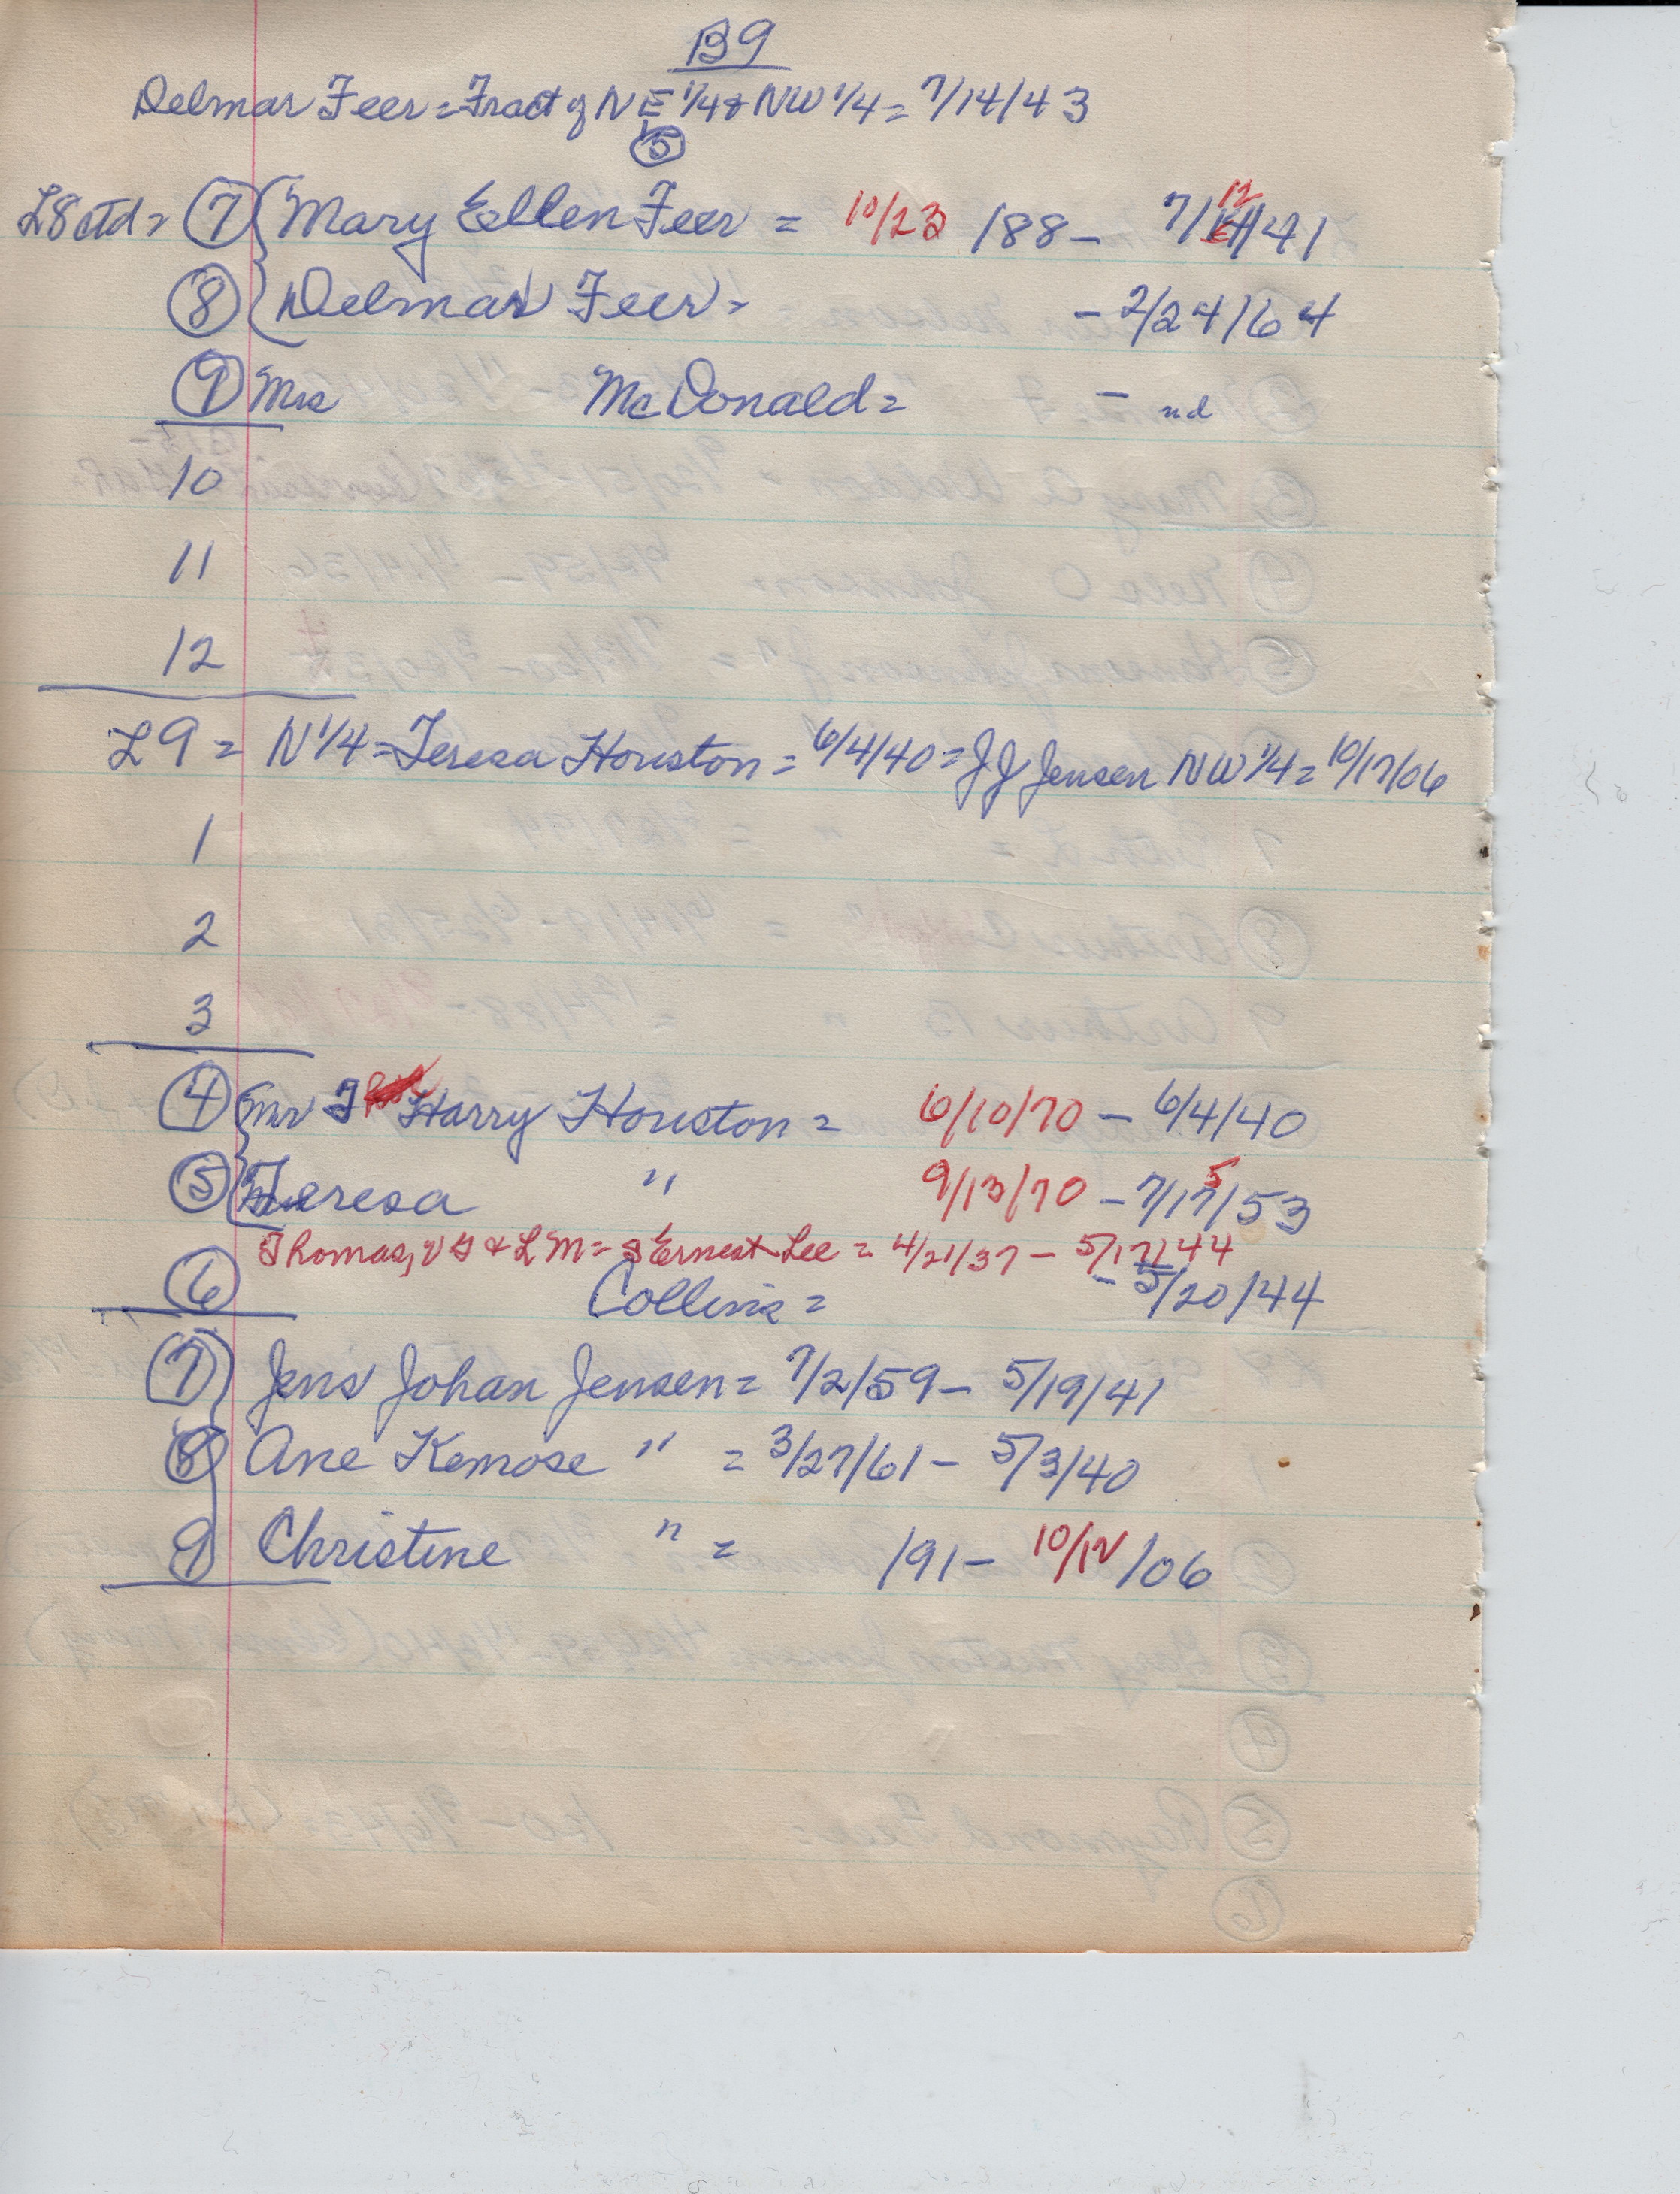 B9
Delmar Feer = Fract of NE 1/4 & NW 1/4 = 7/14/43
5
L8 ctd = 7 Mary Ellen Feer = 10/23 /88 - 7/12/41
8 Delmar Feer = - 2/24/64
9 Mrs McDonald = - nd
10
11
12
L9 = N 1/4 = Teresa Houston = 6/4/40 = J J Jensen NW 1/4 = 10/17/06
1
2
3
4 Mr T Harry Houston = 6/10/70 - 6/4/40
5 Teresa " 9/13/70 - 7/15/53
Thomas, V G & L M = s Ernest Lee = 4/21/37 - 5/17/44
6 Collins = - 5/20/44
7 Jens Johan Jensen = 7/2/59 - 5/19/41
8 Ane Kemose " = 3/27/61 - 5/3/40
9 Christine " = /91 - 10/12/06